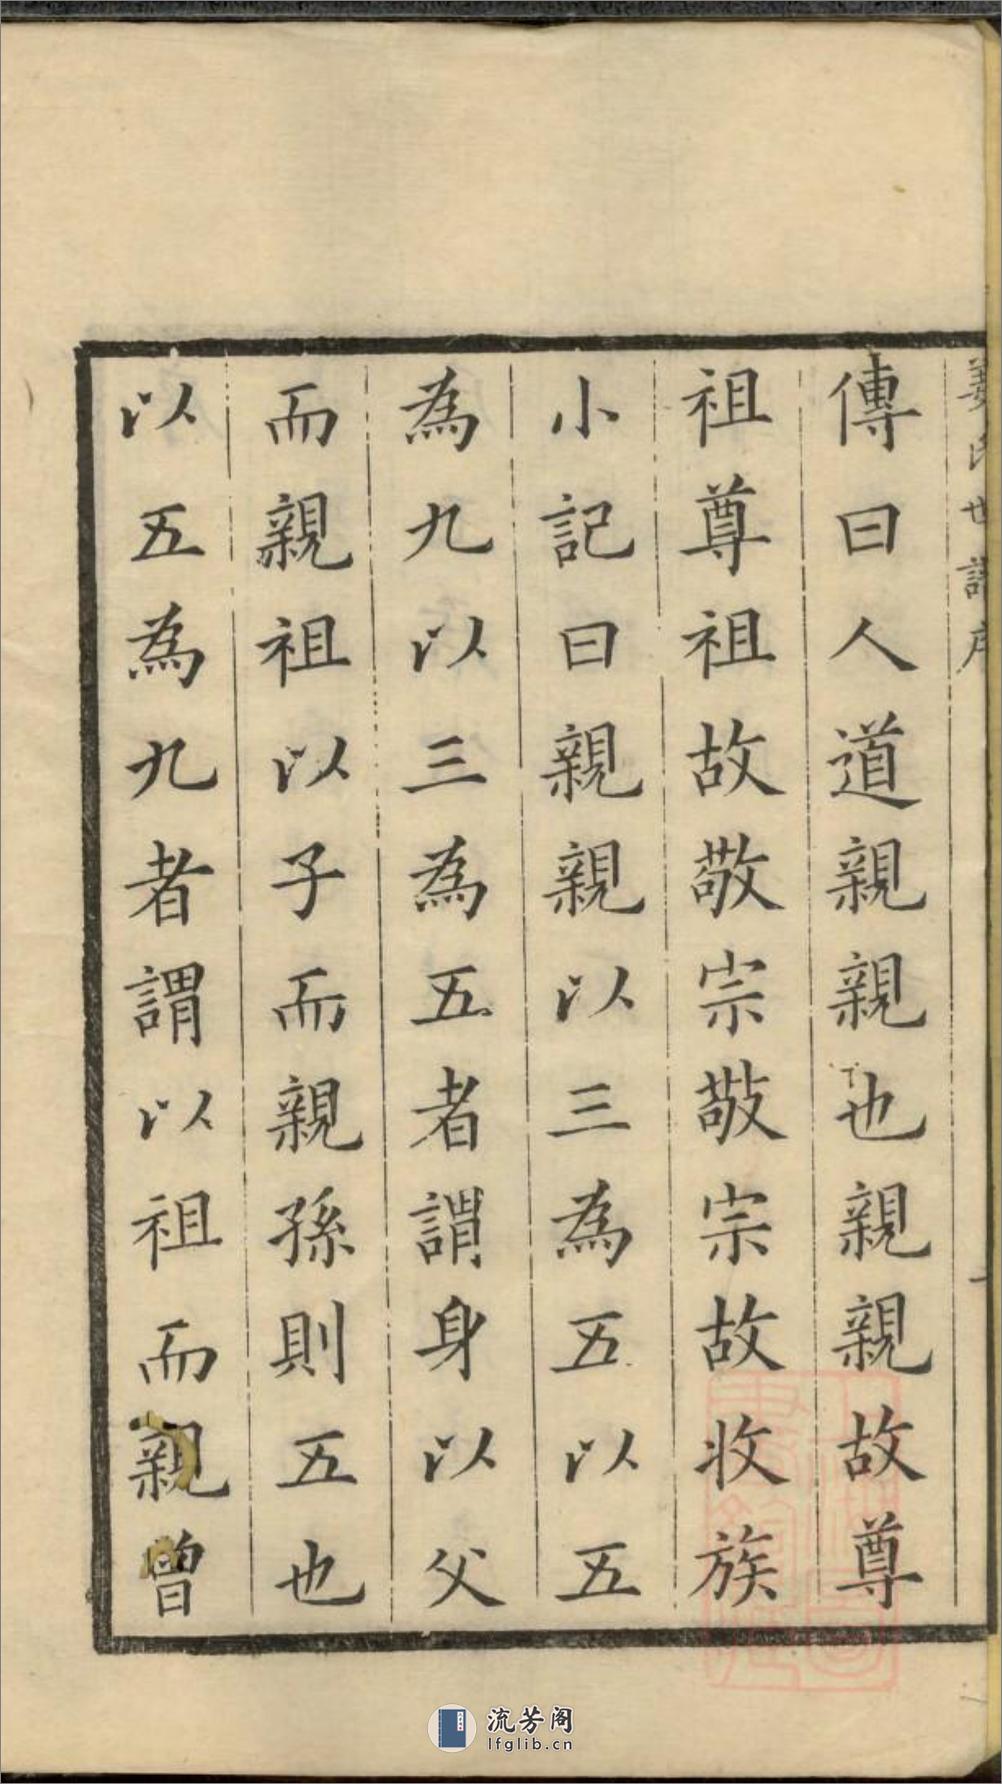 姜氏世譜序
傳曰人道親親也親親故尊
祖尊祖故敬宗敬宗故收族
小記曰親親以三為五以五
為九以三為五者謂身以父
而親祖以子而親孫則五也
以五為九者謂以祖而親曾
流芳阁
lfglib.cn